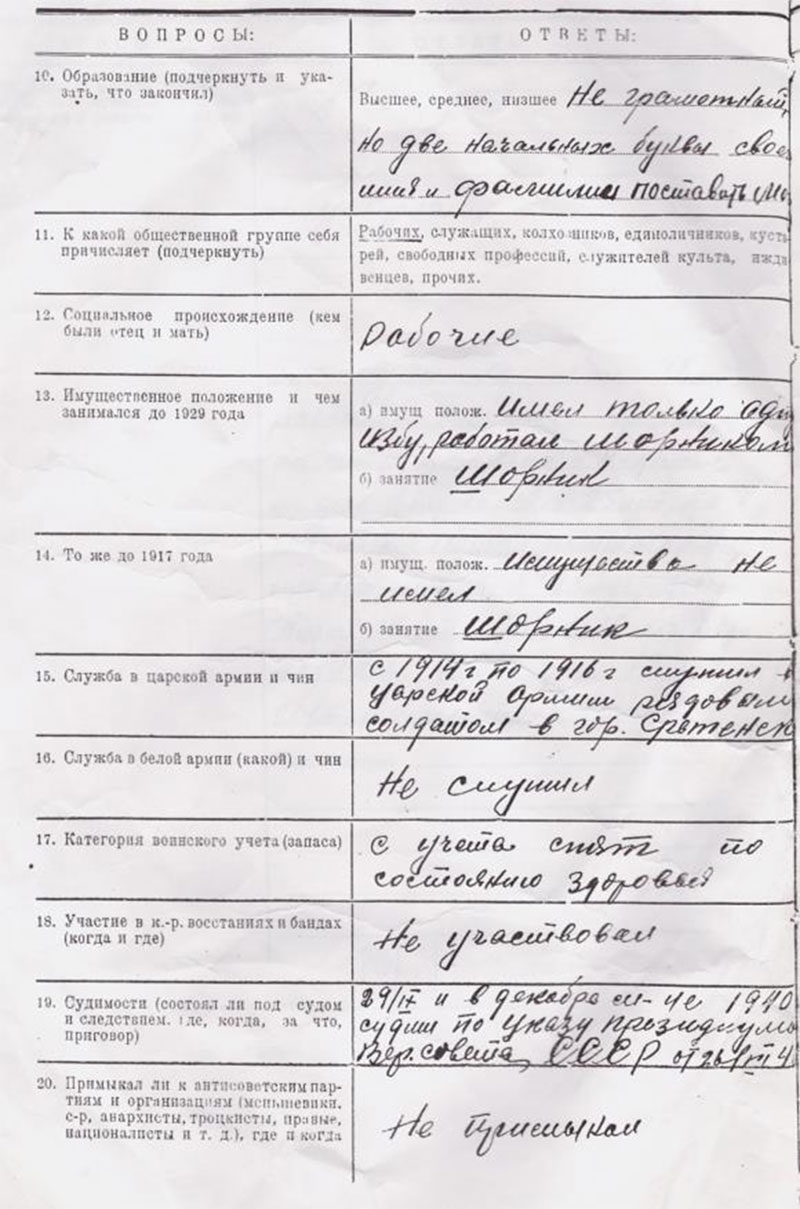 ВОПРОСЫ:
ОТВЕТЫ:
10. Образование (подчеркнуть и ука-
зать, что закончил)
Высшее, среднее, низшее Не грамотный,
но две начальных буквы свое
имя и фамилии поставать
11. К какой общественной группе себя
причисляет (подчеркнуть)
Рабочих, служащих, колхозников, единоличников, куста
рей, свободных профессий, служителей культа, ижди
венцев, прочих.
12. Социальное происхождение (кем
были отец и мать)
Рабочие
13. Имущественное положение и чем
занимался до 1929 года
а) имущ полож. Имел только одн
избу, работал шорником
б) занятие Шорник
14. То же до 1917 года
а) имущ. полож. Имущества не
имел
б) занятие Шорник
15. Служба в царской армии и чин
с 1914 г по 1916 г служил в
царской армии рядовым
солдатом в гор. Сретенск
16. Служба в белой армии (какой) и чин
Не служил
17. Категория воинского учета (запаса)
С учета снят по
состоянию здоровья
18. Участие в к.-р. восстаниях и бандах
(когда и где)
Не участвовал
19. Судимости (состоял ли под судом
и следствием. где, когда, за что,
приговор)
и в декабре 1940
судим по указу президиума
Вер. совета СССР от 26
20. Примыкал ли к антисоветским пар-
тиям и организациям (меньшевики,
с-р, анархисты, троцкисты, правые,
националисты и т. д.), где и когда
Не примыкал